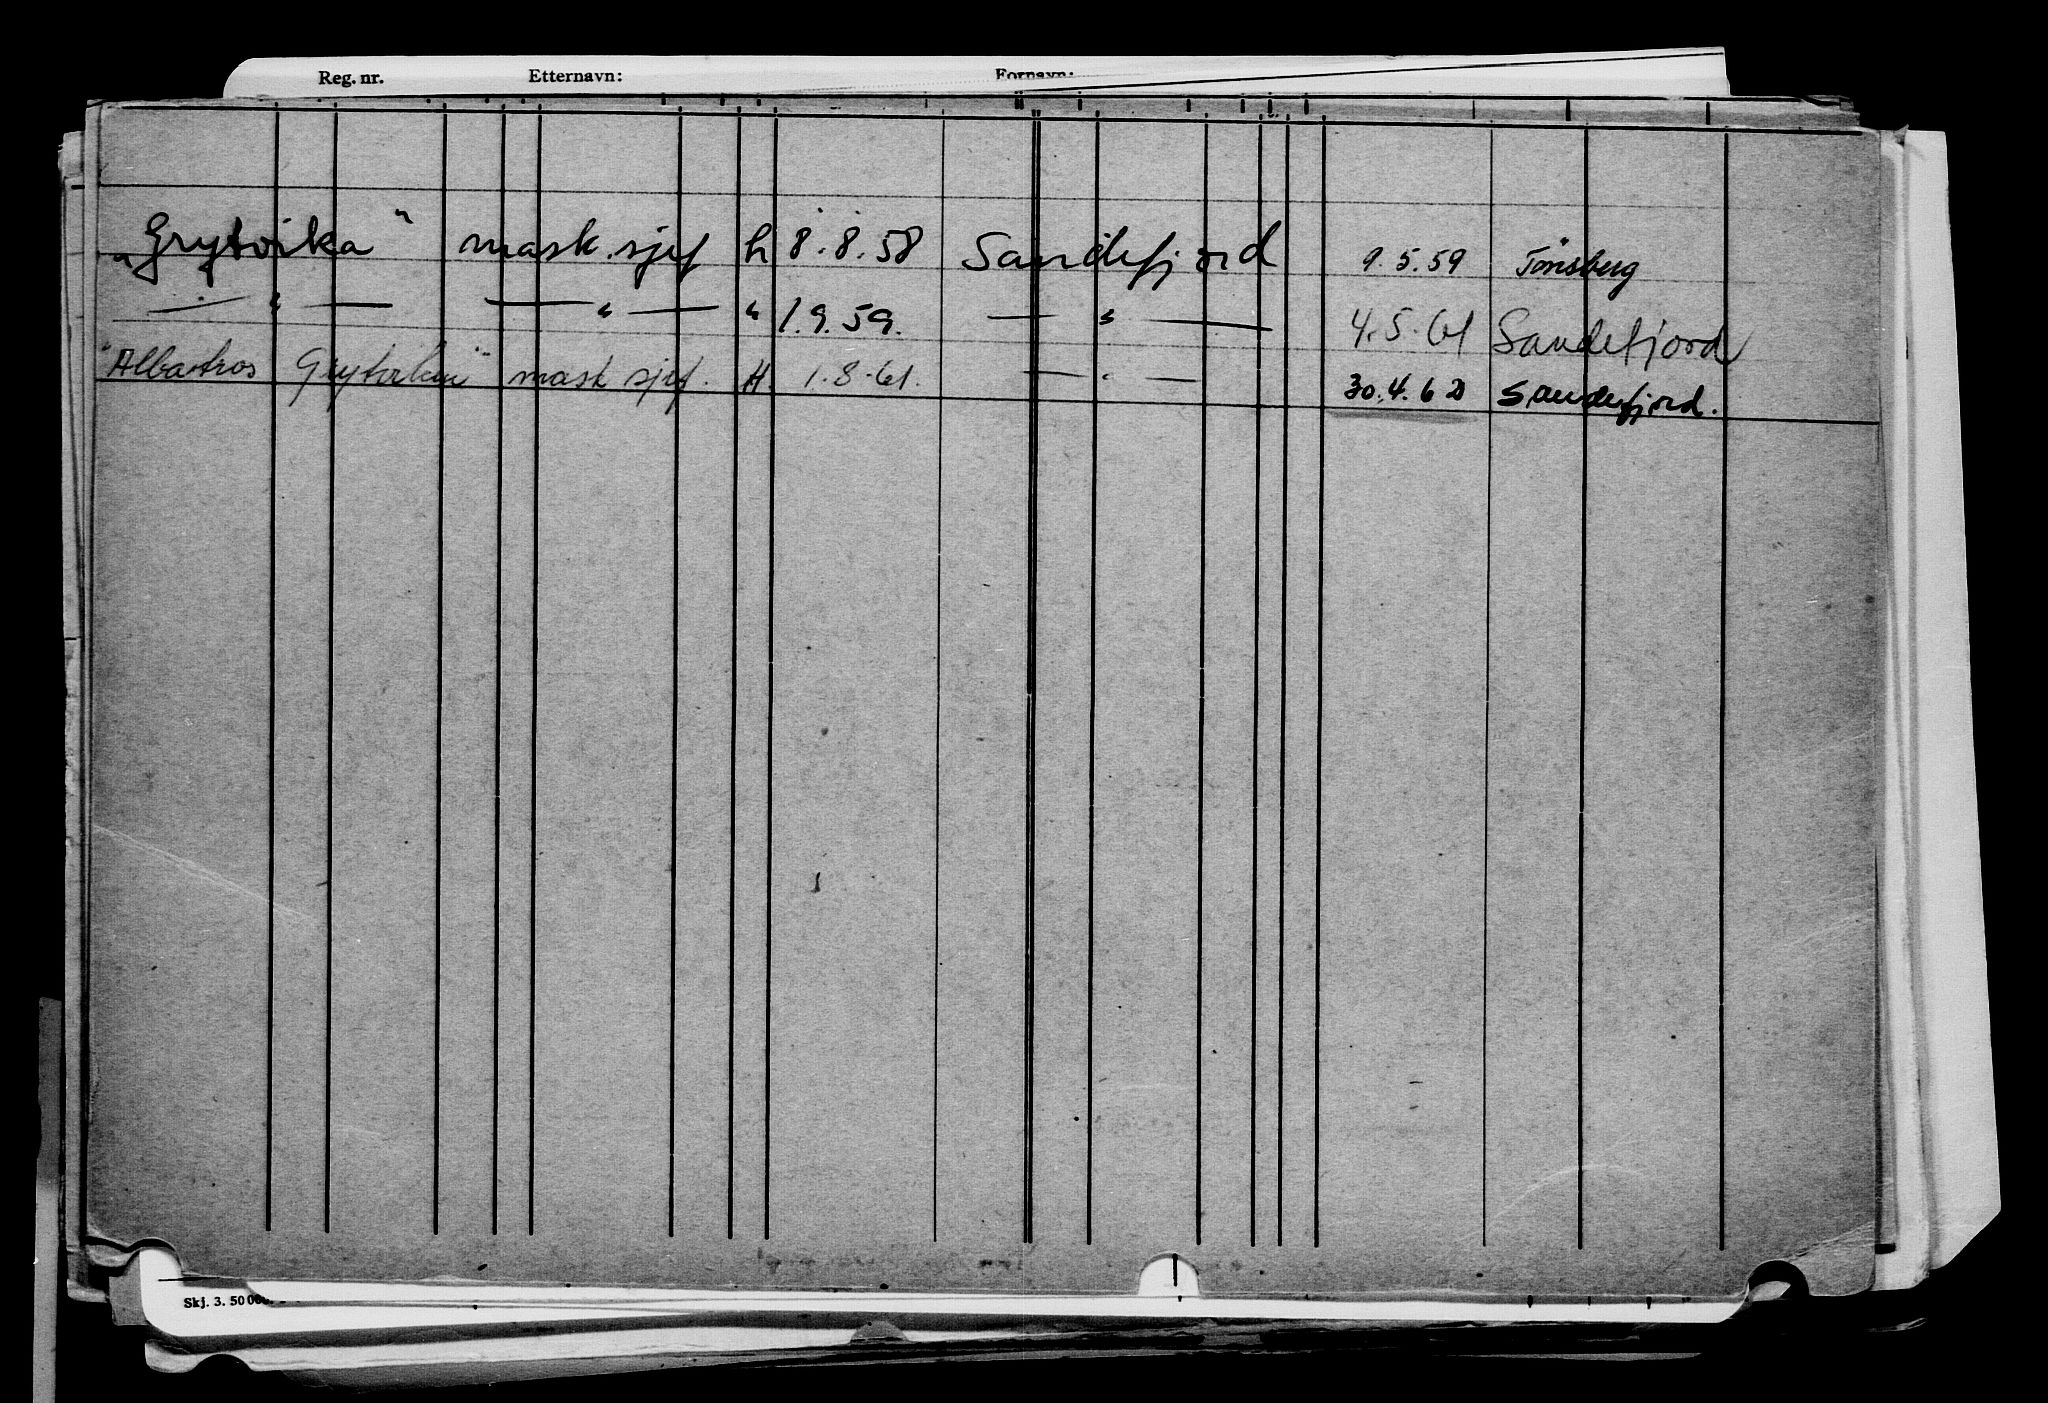 Reg. nr. Etternavn: Fornavn:
„Grytvika“ mask. sjef h 8.8.58 Sandefjord 9.5.59 Tönsberg
— " — — " — " 1.9.59. — " — 4.5.61 Sandefjord
"Albatros Grytviken" mask sjef. H. 1.8.61. — " — 30.4.62 Sandefjord.
Skj. 3. 50 000.